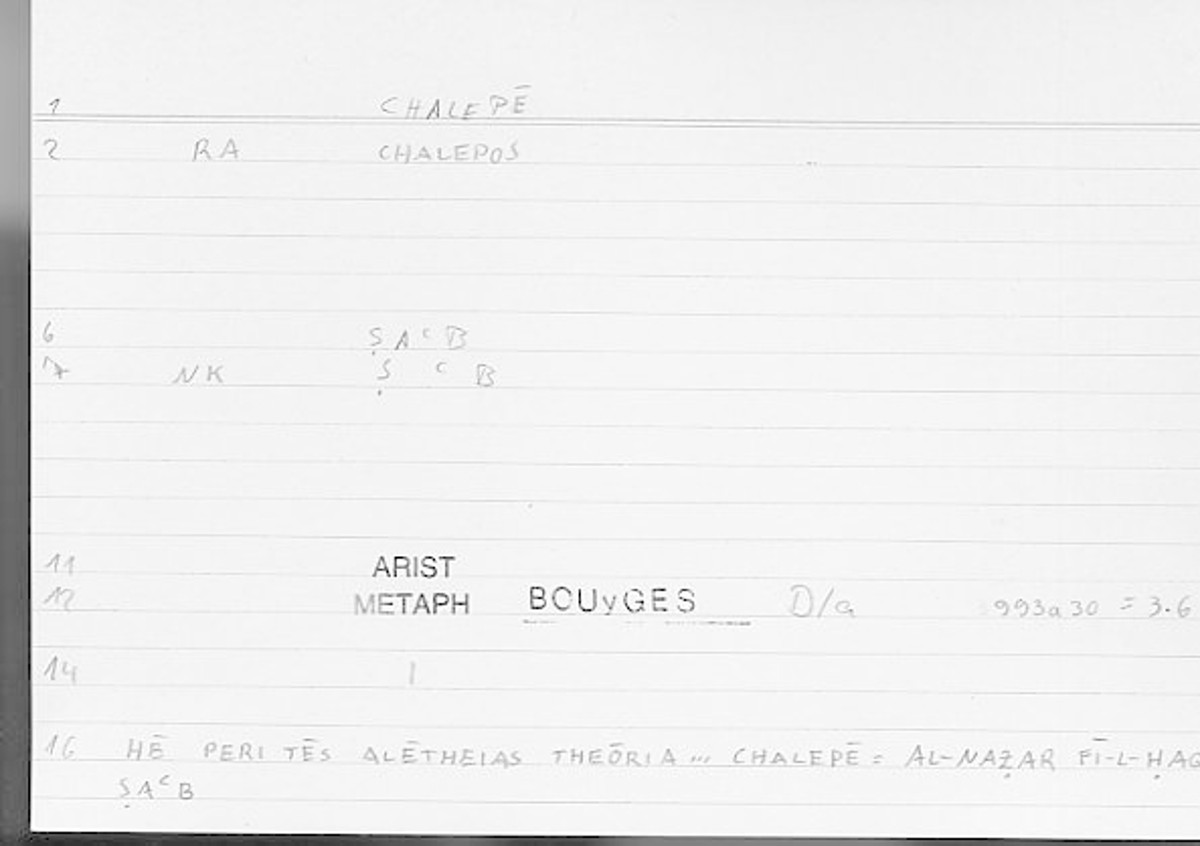 1 CHALEPĒ
2 RA CHALEPOS
6 ṢAᶜB
7 NK Ṣ ᶜ B
11 ARIST
12 METAPH BOUyGES D/a 993a30 = 3.6
14 1
16 HĒ PERI TĒS ALĒTHEIAS THEŌRIA ... CHALEPĒ = AL-NAẒAR FĪ-L-ḤAQ
ṢAᶜB